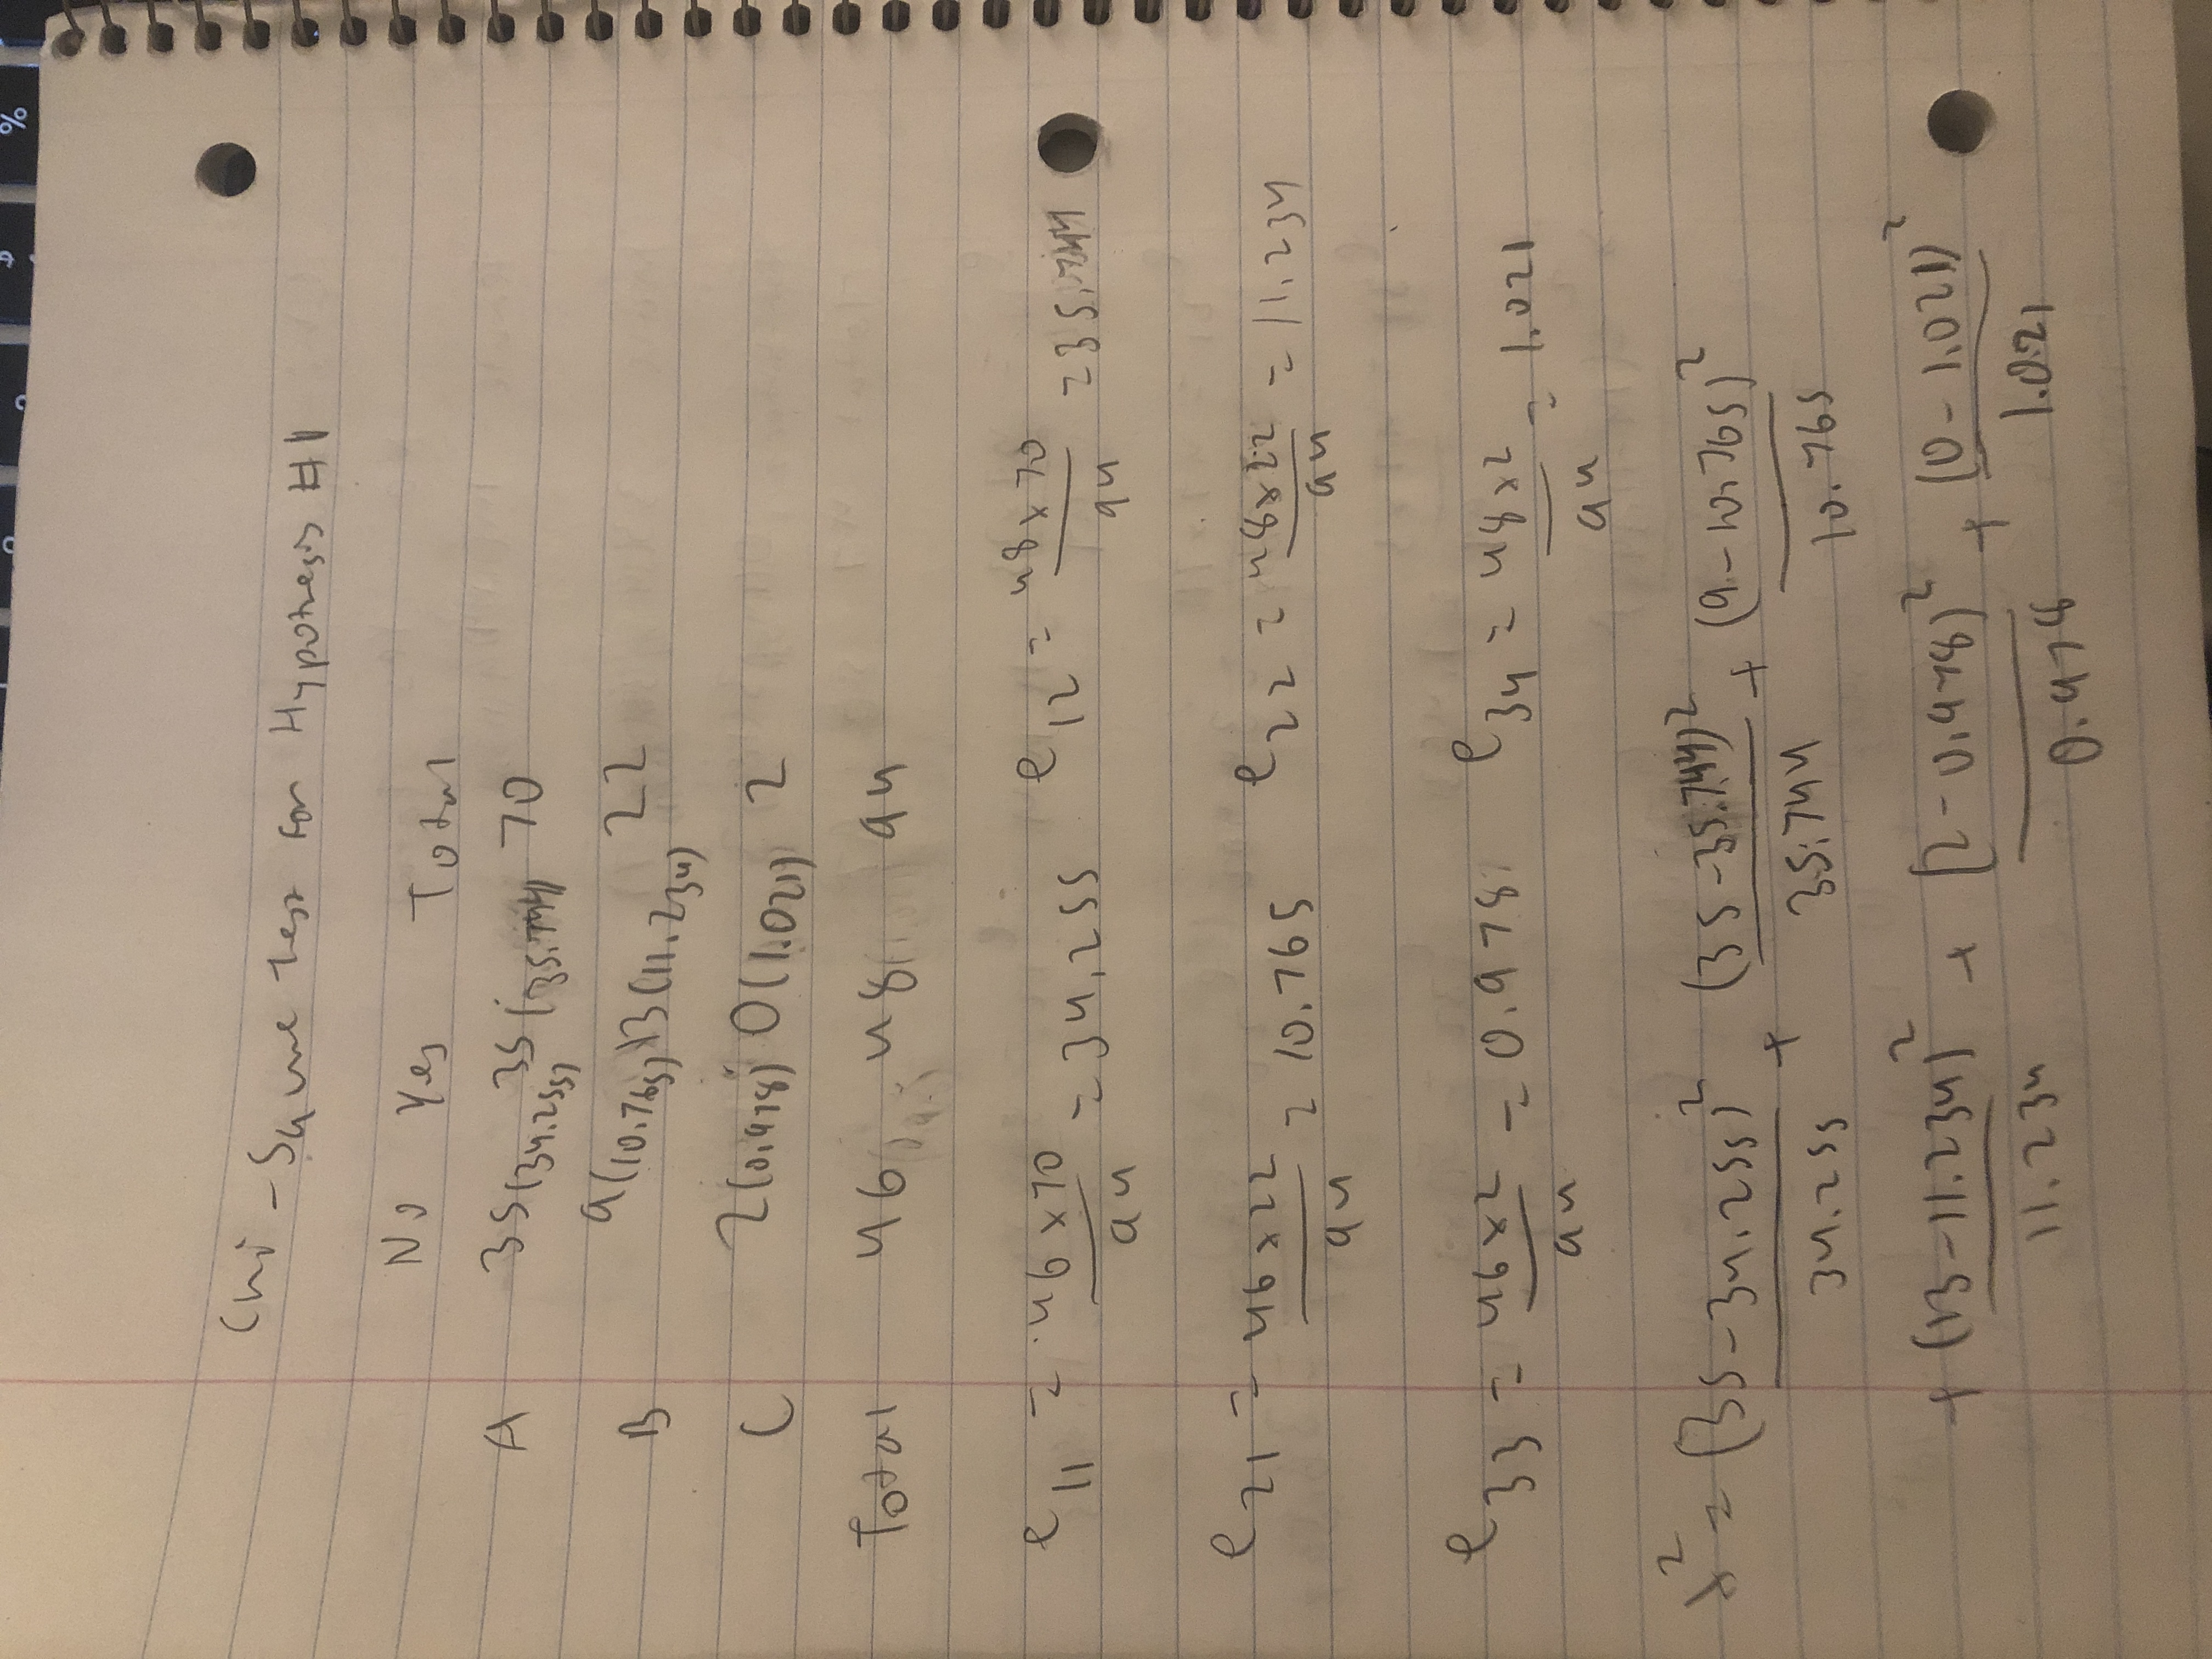 %
Chi-Square test for Hypothesis #1
No Yes Total
A 35(34.255) 35(35.744) 70
B 9(10.765) 13(11.234) 22
C 2(0.978) 0(1.021) 2
Total 46 48 94
e11 = 46x70/94 = 34.255 e12 = 48x70/94 = 35.744
e21 = 46x22/94 = 10.765 e22 = 48x22/94 = 11.234
e33 = 46x2/94 = 0.978 e34 = 48x2/94 = 1.021
x² = (35-34.255)²/34.255 + (35-35.744)²/35.744 + (9-10.765)²/10.765
+ (13-11.234)²/11.234 + (2-0.978)²/0.978 + (0-1.021)²/1.021